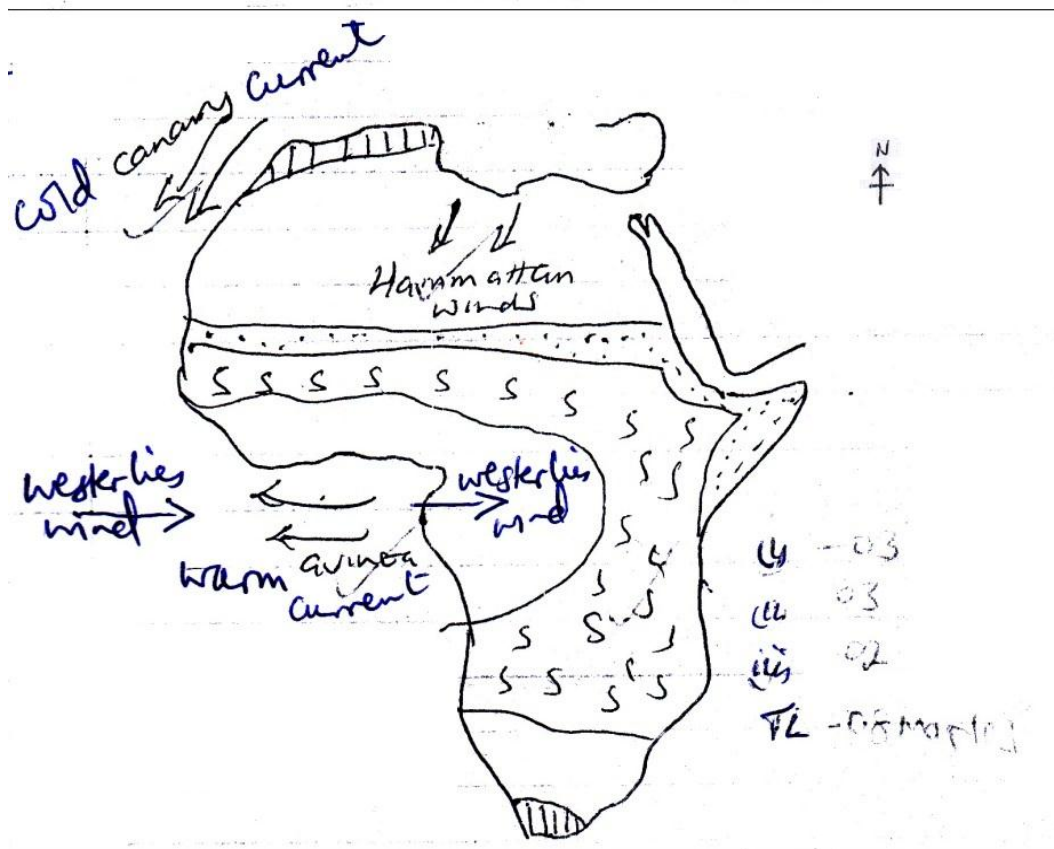 cold canary current
N
Harmattan
winds
S S S S S S S
S S
S S
S
S
S S
S S S
S S S S
westerlies
wind
westerlies
wind
warm guinea
current
(i) - 03
(ii 03
iii) 02
TL - 08